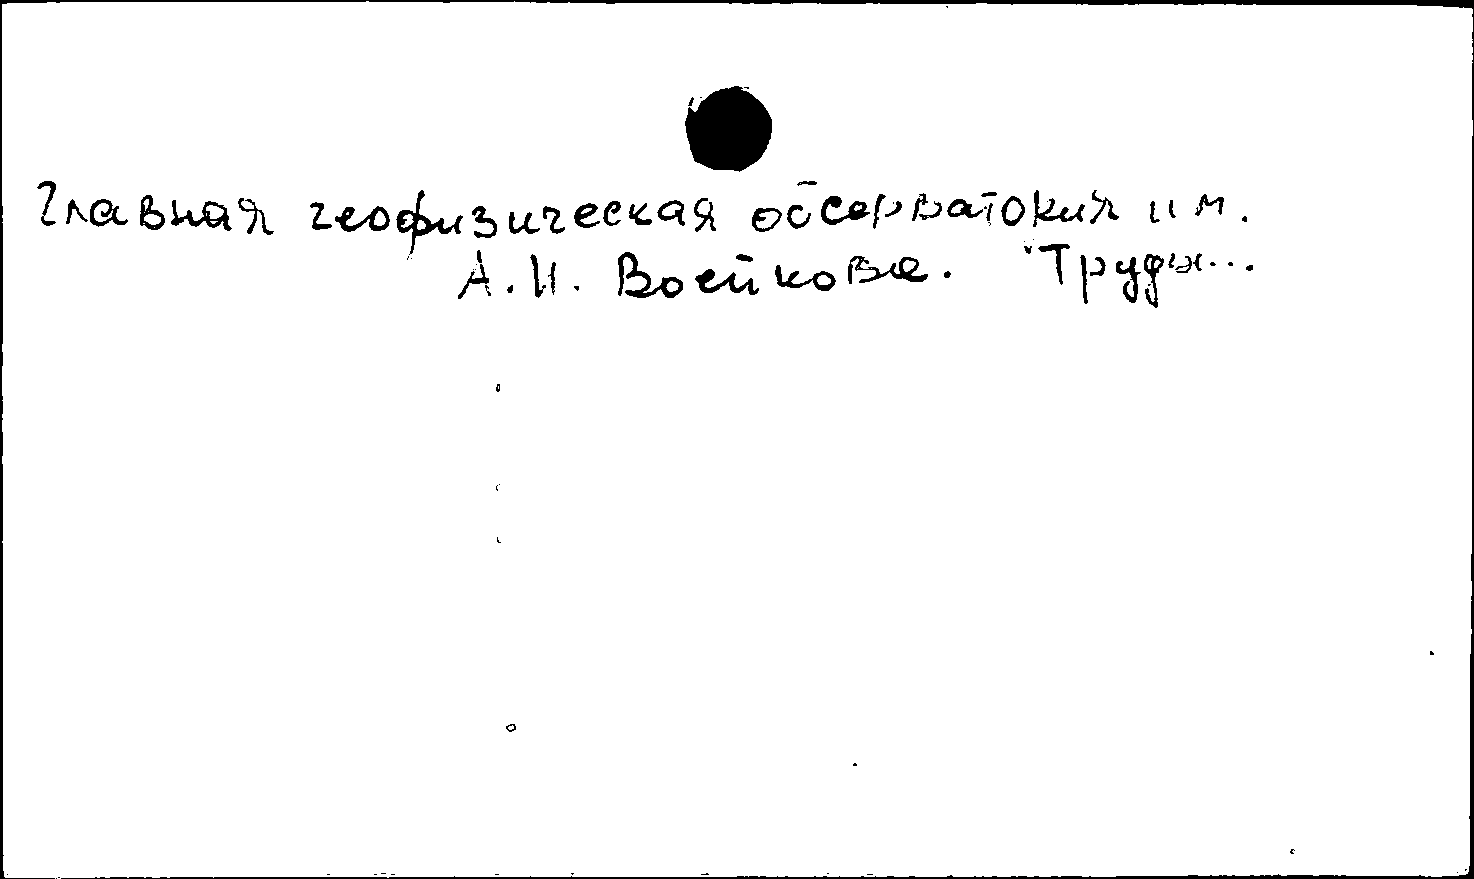 Главная геофизическая обсерватория им.
А.И. Воейкова. Труды...